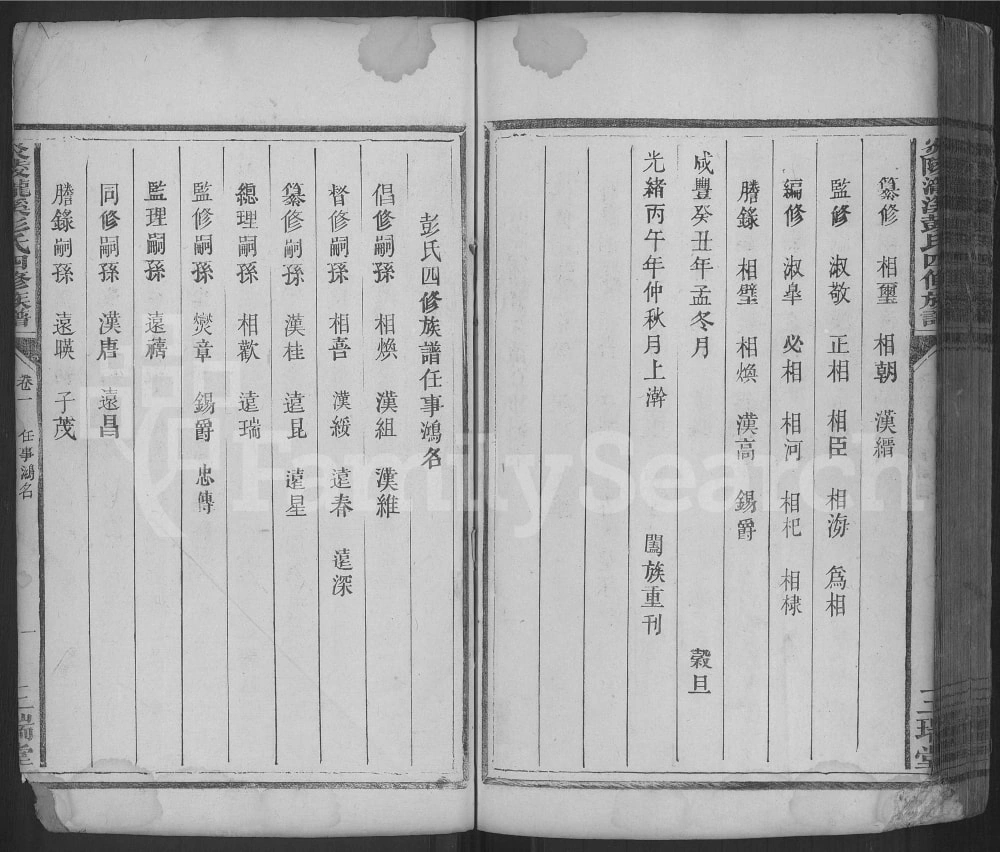 纂修 相璽 相朝 漢縉
監修 淑敬 正相 相臣 相海 爲相
編修 淑皋 必相 相河 相杞 相棣
謄錄 相璧 相煥 漢高 錫爵
咸豐癸丑年孟冬月 榖旦
光緒丙午年仲秋月上澣 闔族重刊
彭氏四修族譜任事鴻名
倡修嗣孫 相煥 漢組 漢維
督修嗣孫 相喜 漢綏 遠春 遠深
纂修嗣孫 漢桂 遠昆 遠星
總理嗣孫 相歡 遠瑞
監修嗣孫 爕章 錫爵 忠傳
監理嗣孫 遠𧄍
同修嗣孫 漢唐 遠昌
謄錄嗣孫 遠暎 子茂
彭氏四修族譜 卷一 任事鴻名 一 三瑞堂
FamilySearch